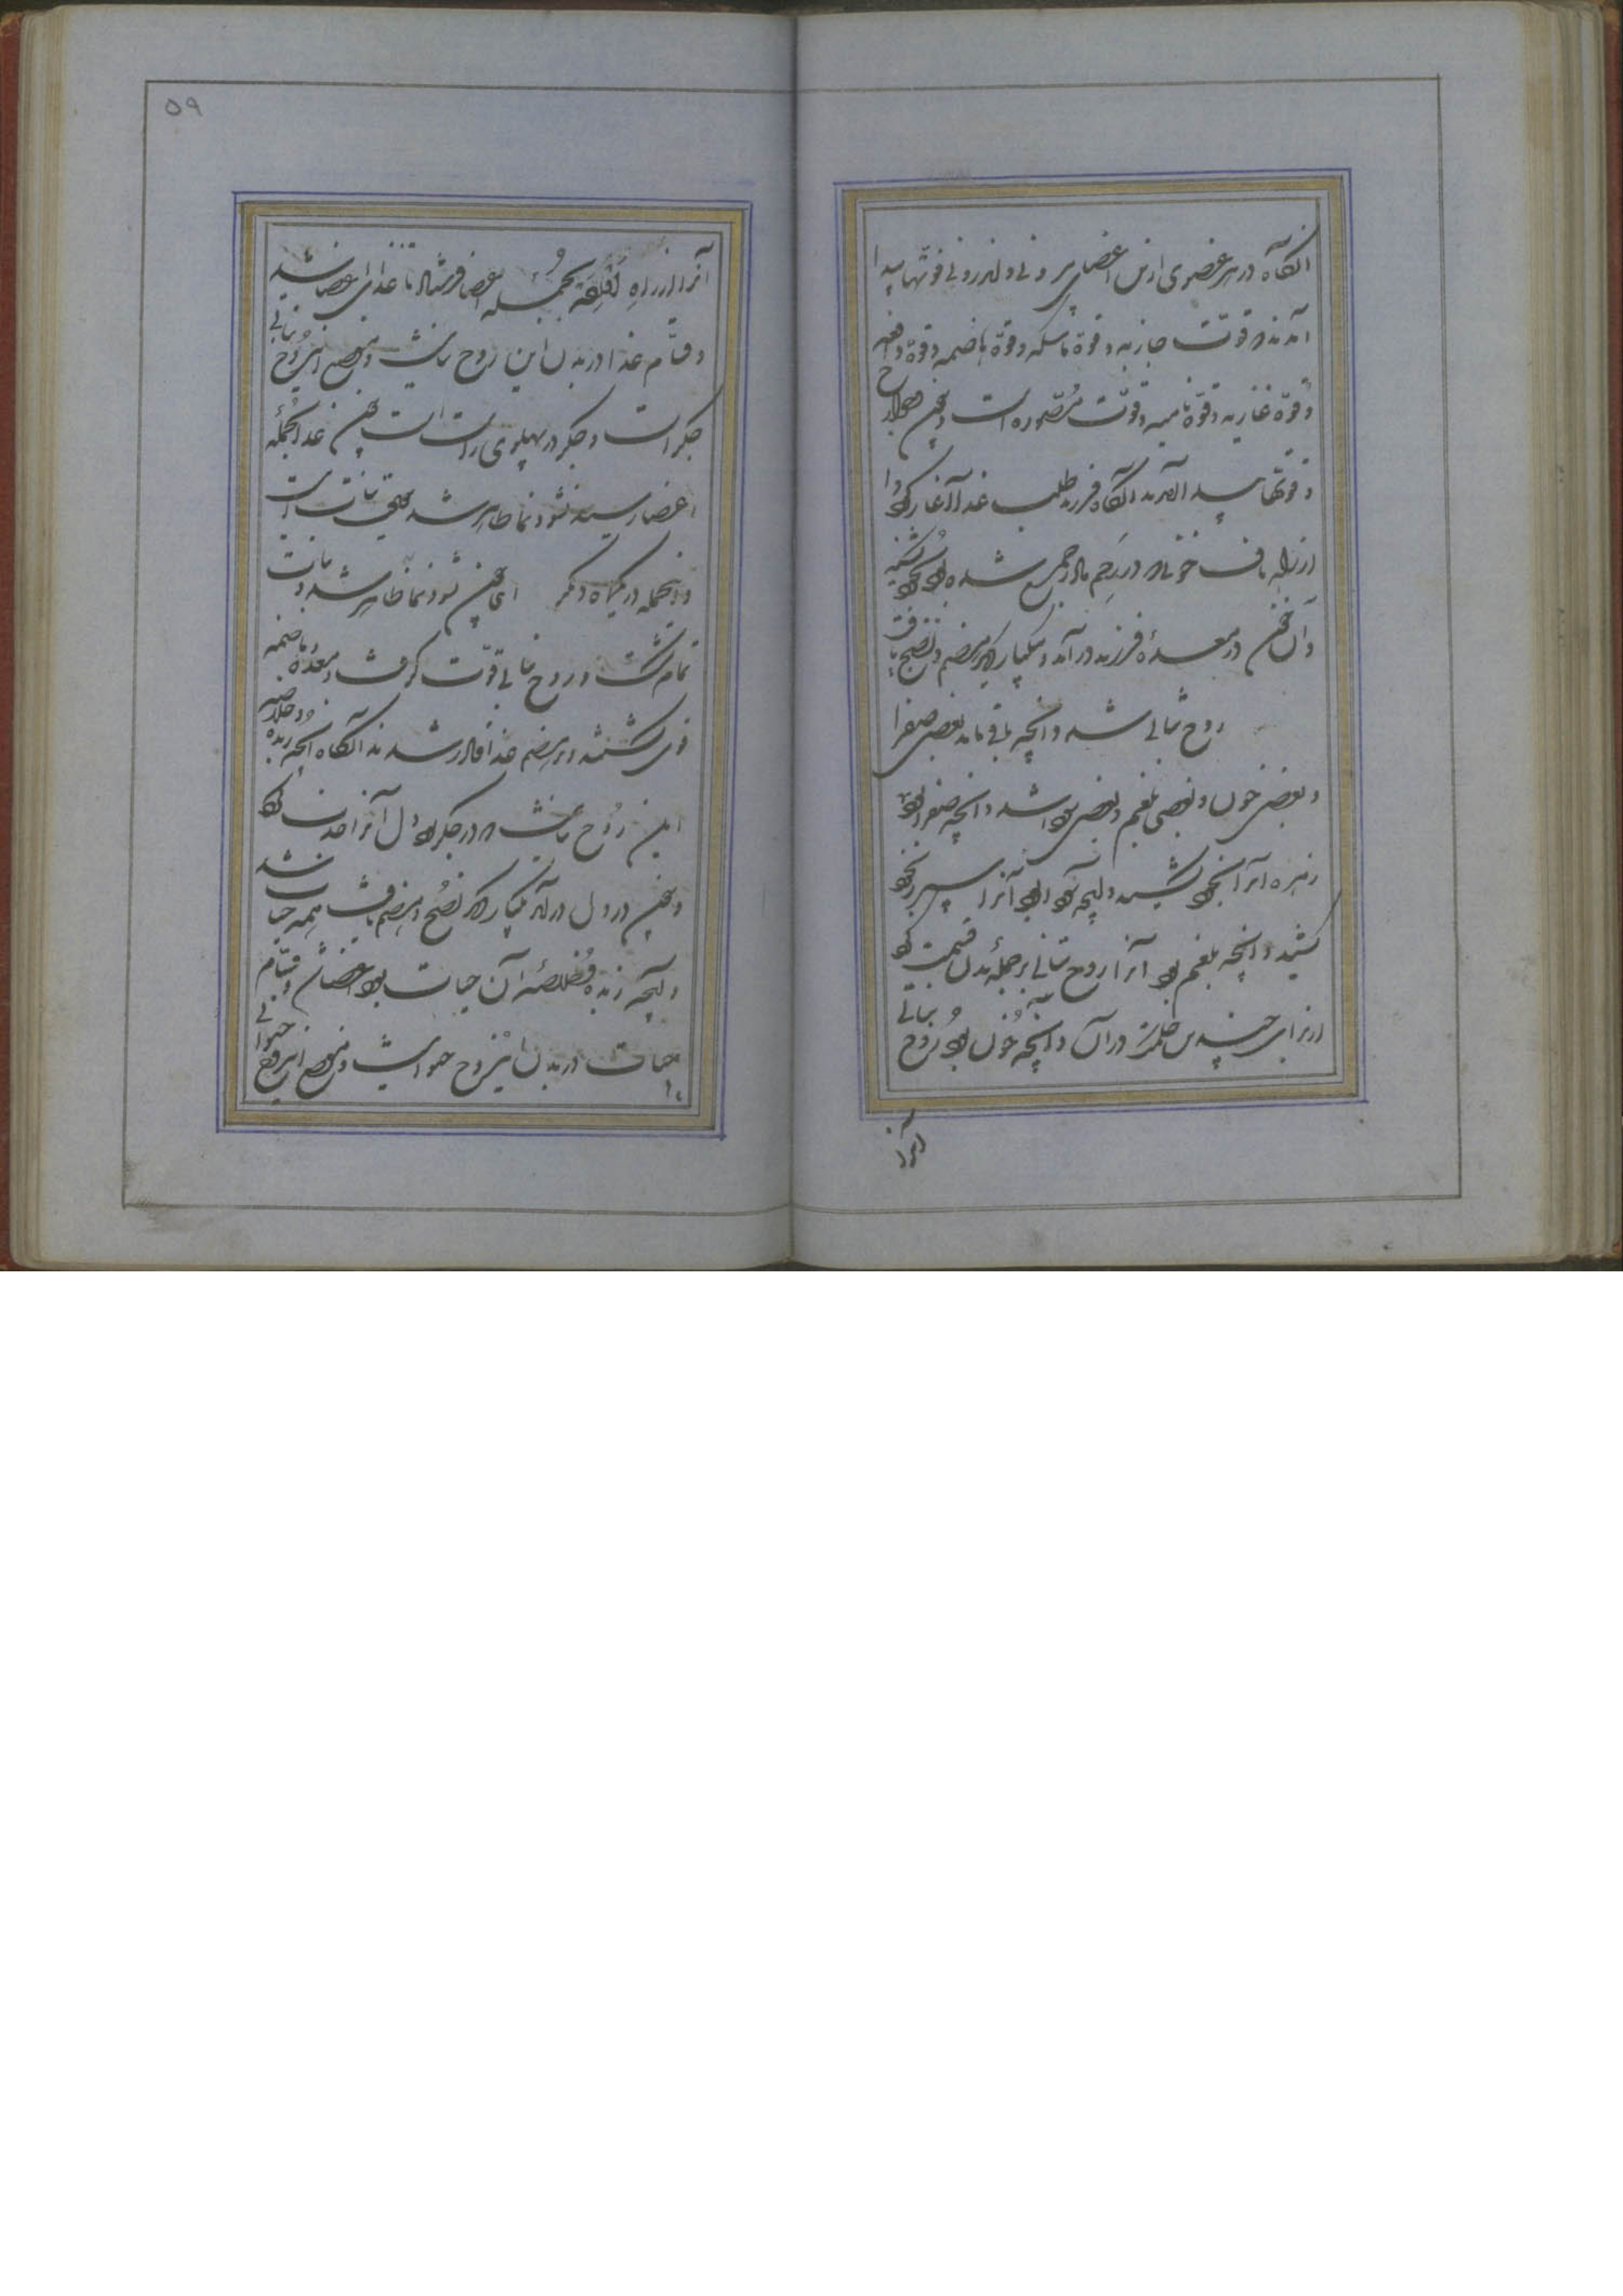 آنگاه در هر عضوی ازین اعضای بیرونی و اندرونی قوتها پیدا
آمدند قوت جاذبه و قوة ماسکه و قوة هاضمه و قوة دافعه
و قوة غاذیه و قوة نامیه و قوت مصوره است و چون جوارح
و قوتها پیدا آمدند آنگاه فرزند طلب غذا آغاز کرد و از
ناف خون که در رحم مادر جمع شده بود بخود کشید
و آن خون در معدۀ فرزند در آمد و یکبار دیگر هضم و نضج یافت
روح نباتی شد و آنچه باقی ماند بعضی صفرا
و بعضی خون و بعضی بلغم و بعضی سودا شد و آنچه صفرا بود
زهره آنرا بخود کشید و آنچه سودا بود آنرا سپرز بخود
کشید و آنچه بلغم بود آنرا روح نباتی بر جملۀ بدن قسمت کرد
از برای چندین حکمت در آن و آنچه خون بود روح نباتی
آنرا
۵۹
آنرا از راه بجمله اعضا فرستاد تا غذای اعضا شد
و قسام غذا در بدن این روح نباتیست و موضع این روح نباتی
جگر است و جگر در پهلوی راست است چون غذا بجملۀ
اعضا رسید نشو و نما ظاهر شد حقیقت نبات اینست
و اینجمله در یکماه دیگر ای چون نشو و نما ظاهر شد و نبات
تمام گشت و روح نباتی قوت گرفت و معده و هاضمه
قوی گشتند و بر هضم غذا قادر شدند آنگاه آنچه زبده و خلاصه
این روح نباتیست که در جگر بود دل آنرا جذب کرد
و چون در دل در آمد یکبار دیگر نضج و هضم یافت همه حیات شد
و آنچه زبده و خلاصۀ آن حیات بود و قسام
حیات در بدن این روح حیوانیست و موضع این روح حیوانی